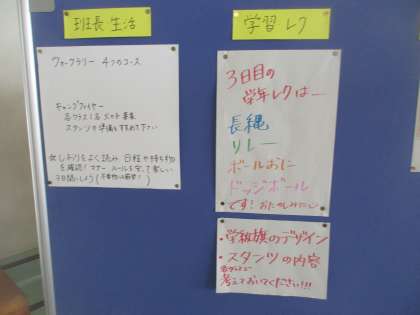 班長 生活
ウォークラリー 4つのコース
キャンプファイヤー
各クラス1名 火の子 募集
スタンツの準備もすすめて下さい
☆しおりをよく読み、日程や持ち物
を確認！マナー・ルールを守って楽しい
3日間にしよう(不要物は厳禁！)
学習 レク
3日目の
学年レクは―
長縄
リレー
ボールおに
ドッジボール
です！おたのしみに
・学級旗のデザイン
・スタンツの内容
考えておいてください!!!